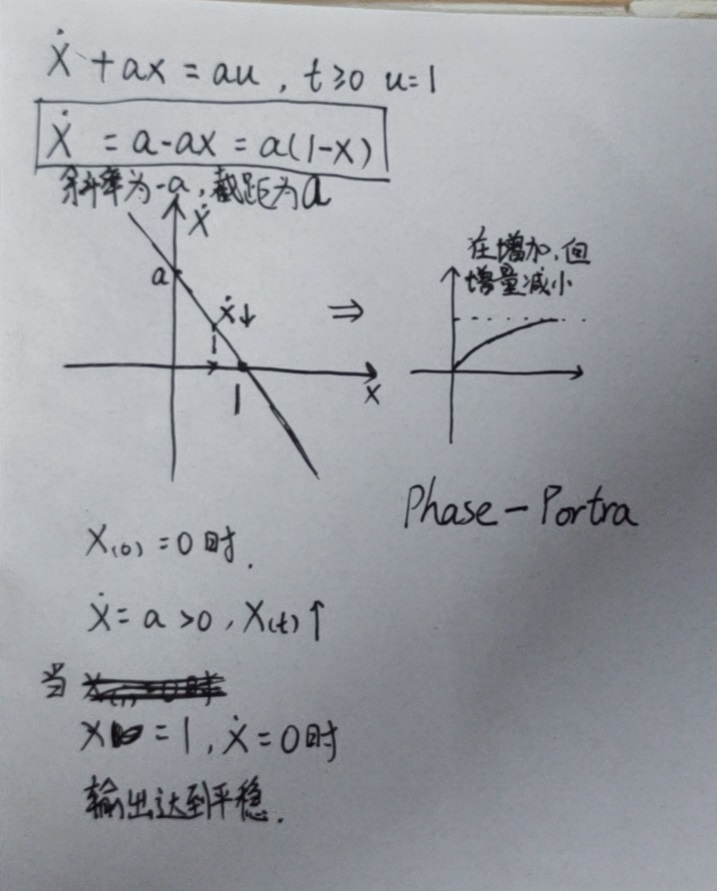 ẋ + ax = au , t≥0 u=1
ẋ = a-ax = a(1-x)
斜率为-a,截距为a
ẋ
a
ẋ↓
⇒
1
x
在增加,但
增量减小
Phase-Portra
x(0) = 0时.
ẋ = a >0 , x(t)↑
当
x = 1 , ẋ = 0时
输出达到平稳.